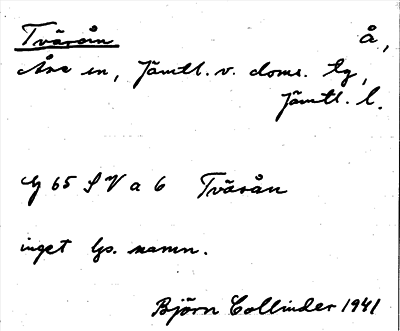 Tväråν å,
Åre sn, Jämtl. v. doms. tg,
Jämtl. l.
G 65 S V a 6 Tvärån
inget lps. namn.
Björn Collinder 1941